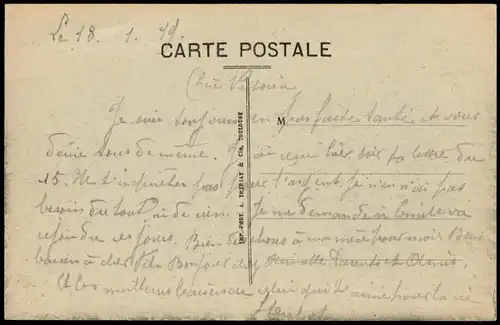 Le 18. 1. 19.
CARTE POSTALE
Chère Victoria
Je suis toujours en parfaite santé et vous
désire tous de même. J'ai reçu hier soir ta lettre du
15. Ne t'inquiètes pas pour l'argent. Je n'en ai pas
besoin du tout, ni de rien. Je me demande si Emile va
rejoindre ces jours. Bien des choses à ma mère pour moi. Bons
baisers à Bonjour Parents et Amis
Et les meilleurs baisers de celui qui t'aime pour la vie
M
IMP.-PHOT. A. THIRIAT & Cie, TOULOUSE